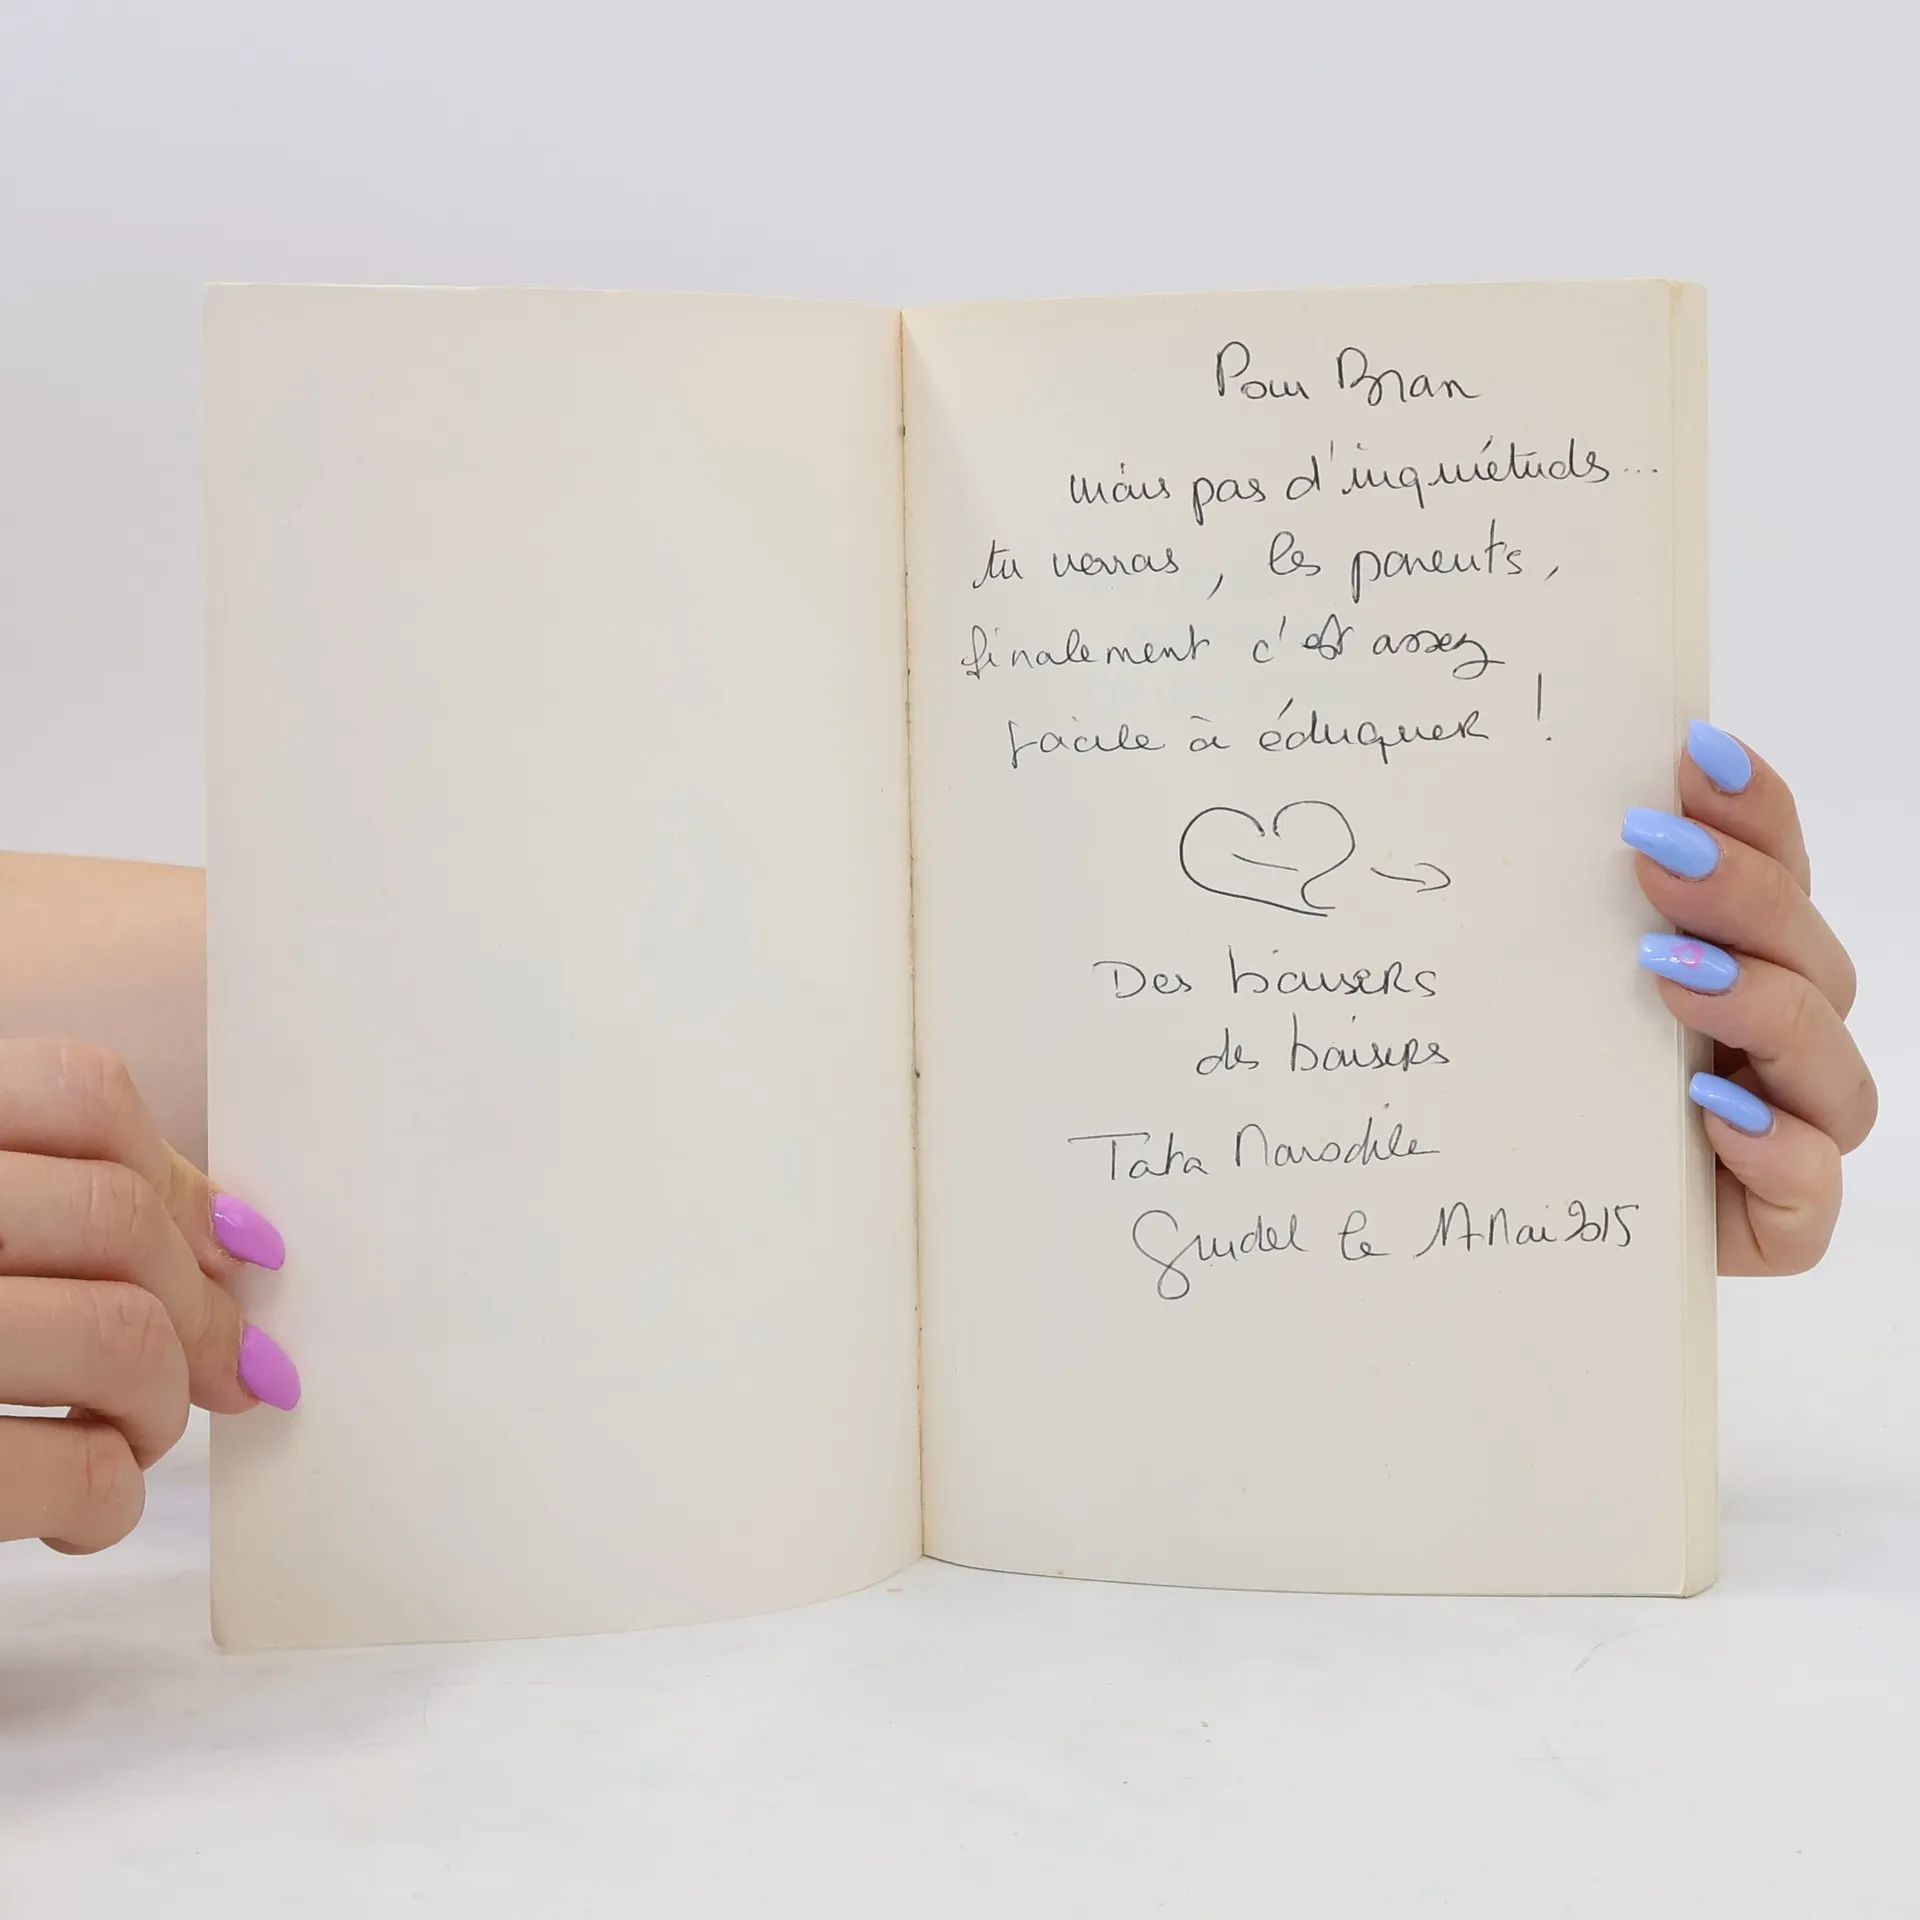 Pour Bran
mais pas d'inquiétude...
tu verras, les parents,
finalement c'est assez
facile à éduquer !
Des baisers
des baisers
Tata
le 17 Mai 2015